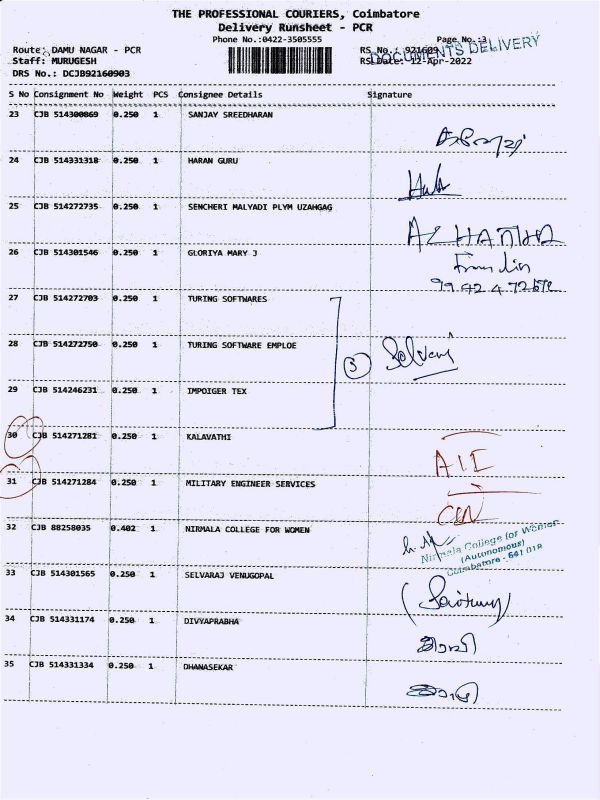 THE PROFESSIONAL COURIERS, Coimbatore
Delivery Runsheet - PCR
Phone No.:0422-3505555
Page No.:3
DOCUMENTS DELIVERY
Route: DAMU NAGAR - PCR
RS No.: 921609
Staff: MURUGESH
RS Date: 12-Apr-2022
DRS No.: DCJB92160903
S No Consignment No Weight PCS Consignee Details Signature
23 CJB 514300869 0.250 1 SANJAY SREEDHARAN
24 CJB 514331318 0.250 1 HARAN GURU
25 CJB 514272735 0.250 1 SENCHERI MALYADI PLYM UZAHGAG
26 CJB 514301546 0.250 1 GLORIYA MARY J
27 CJB 514272703 0.250 1 TURING SOFTWARES
28 CJB 514272750 0.250 1 TURING SOFTWARE EMPLOE 3 Selvani
29 CJB 514246231 0.250 1 IMPOIGER TEX
30 CJB 514271281 0.250 1 KALAVATHI
31 CJB 514271284 0.250 1 MILITARY ENGINEER SERVICES
32 CJB 88258035 0.402 1 NIRMALA COLLEGE FOR WOMEN
Nirmala College for Women
(Autonomous)
Coimbatore - 641 018
33 CJB 514301565 0.250 1 SELVARAJ VENUGOPAL
34 CJB 514331174 0.250 1 DIVYAPRABHA
35 CJB 514331334 0.250 1 DHANASEKAR